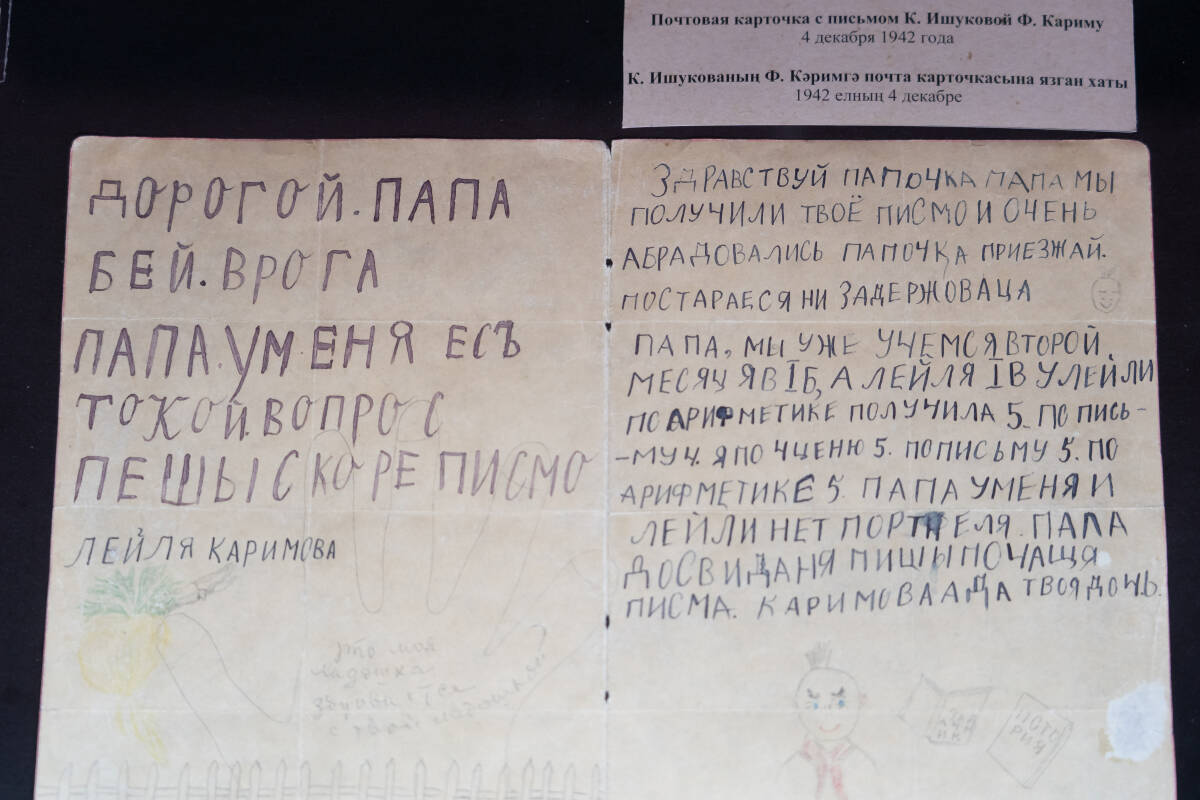 Почтовая карточка с письмом К. Ишуковой Ф. Кариму
4 декабря 1942 года
К. Ишукованың Ф. Кәримгә почта карточкасына язган хаты
1942 елның 4 декабре
ДОРОГОЙ. ПАПА
БЕЙ. ВРОГА
ПАПА. УМЕНЯ ЕСЪ
ТОКОЙ. ВОПРОС
ПЕШЫ СКОРЕ ПИСМО
ЛЕЙЛЯ КАРИМОВА
это моя
ладошка
с твоей
ЗДРАВСТВУЙ ПАПОЧКА ПАПА МЫ
ПОЛУЧИЛИ ТВОЁ ПИСМО И ОЧЕНЬ
АБРАДОВАЛИСЬ ПАПОЧКА ПРИЕЗЖАЙ.
ПОСТАРАЕСЯ НИ ЗАДЕРЖОВАЦА
ПАПА, МЫ УЖЕ УЧЕМСЯ ВТОРОЙ
МЕСЯЦ Я В IБ, А ЛЕЙЛЯ IВ У ЛЕЙЛИ
ПО АРИФМЕТИКЕ ПОЛУЧИЛА 5. ПО ПИСЬ-
-МУ 4. Я ПО ЧЦЕНЮ 5. ПО ПИСЬМУ 5. ПО
АРИФМЕТИКЕ 5. ПАПА УМЕНЯ И
ЛЕЙЛИ НЕТ ПОРТФЕЛЯ. ПАПА
ДОСВИДАНЯ ПИШЫ ПОЧАЩЯ
ПИСМА. КАРИМОВА АДА ТВОЯ ДОЧЬ.